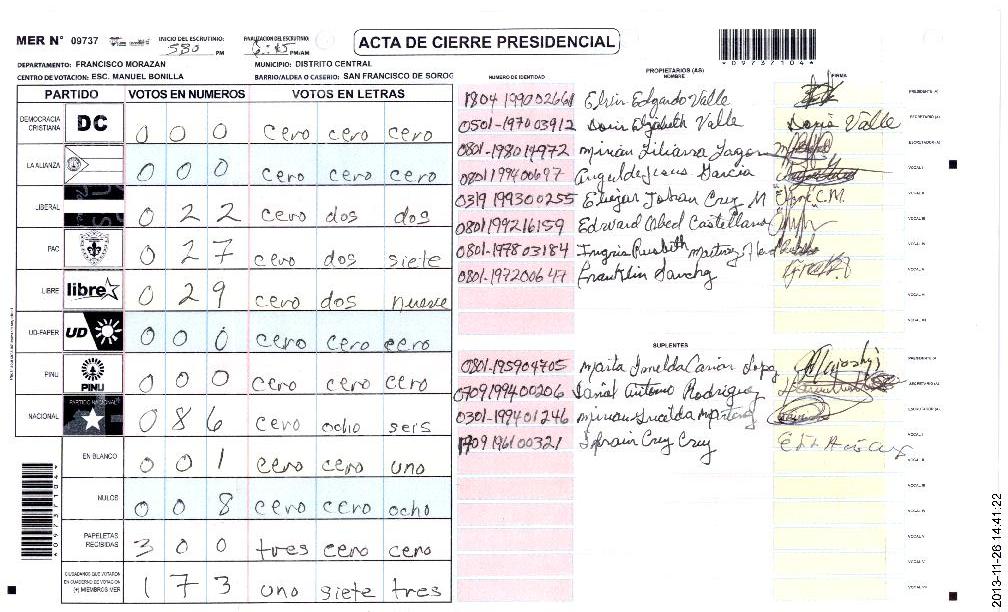 MER N° 09737 INICIO DEL ESCRUTINIO: 530 PM FINALIZACION DEL ESCRUTINIO: PM/AM ACTA DE CIERRE PRESIDENCIAL
*09737104*
DEPARTAMENTO: FRANCISCO MORAZAN MUNICIPIO: DISTRITO CENTRAL
CENTRO DE VOTACION: ESC. MANUEL BONILLA BARRIO/ALDEA O CASERIO: SAN FRANCISCO DE SOROG
PARTIDO VOTOS EN NUMEROS VOTOS EN LETRAS
DEMOCRACIA CRISTIANA DC 0 0 0 cero cero cero
LA ALIANZA 0 0 0 cero cero cero
LIBERAL 0 2 2 cero dos dos
PAC 0 2 7 cero dos siete
LIBRE libre 0 2 9 cero dos nueve
UD-FAPER UD 0 0 0 cero cero cero
PINU PINU 0 0 0 cero cero cero
NACIONAL PARTIDO NACIONAL 0 8 6 cero ocho seis
EN BLANCO 0 0 1 cero cero uno
NULOS 0 0 8 cero cero ocho
PAPELETAS RECIBIDAS 3 0 0 tres cero cero
CIUDADANOS QUE VOTARON EN CUADERNO DE VOTACION (+) MIEMBROS MER 1 7 3 uno siete tres
*09737104*
PROPIETARIOS (AS)
NUMERO DE IDENTIDAD NOMBRE FIRMA
1804 199002661 Elvin Edgardo Valle PRESIDENTE (A)
0501-1970 03912 Doris Elizabeth Valle Doris Valle SECRETARIO (A)
0801-1980 14972 Mirian Liliana ESCRUTADOR (A)
0801 199400697 Angel de Jesus Garcia VOCAL I
0319 199300255 Eliezar Johan Cruz M C.M. VOCAL II
0801 199216159 Edward Obed Castellano VOCAL III
0801-1978 03184 Ingris Martinez VOCAL IV
0801-1972006 Franklin Sanchez VOCAL V
VOCAL VI
VOCAL VII
SUPLENTES
0801-195904705 Marta Imelda PRESIDENTE (A)
0709 199400206 Antonio Rodriguez SECRETARIO (A)
0301-199401246 Mirian Griselda ESCRUTADOR (A)
1709 1961 00321 Efrain Cruz Cruz VOCAL I
VOCAL II
VOCAL III
VOCAL IV
VOCAL V
VOCAL VI
VOCAL VII
2013-11-26 14:41:22